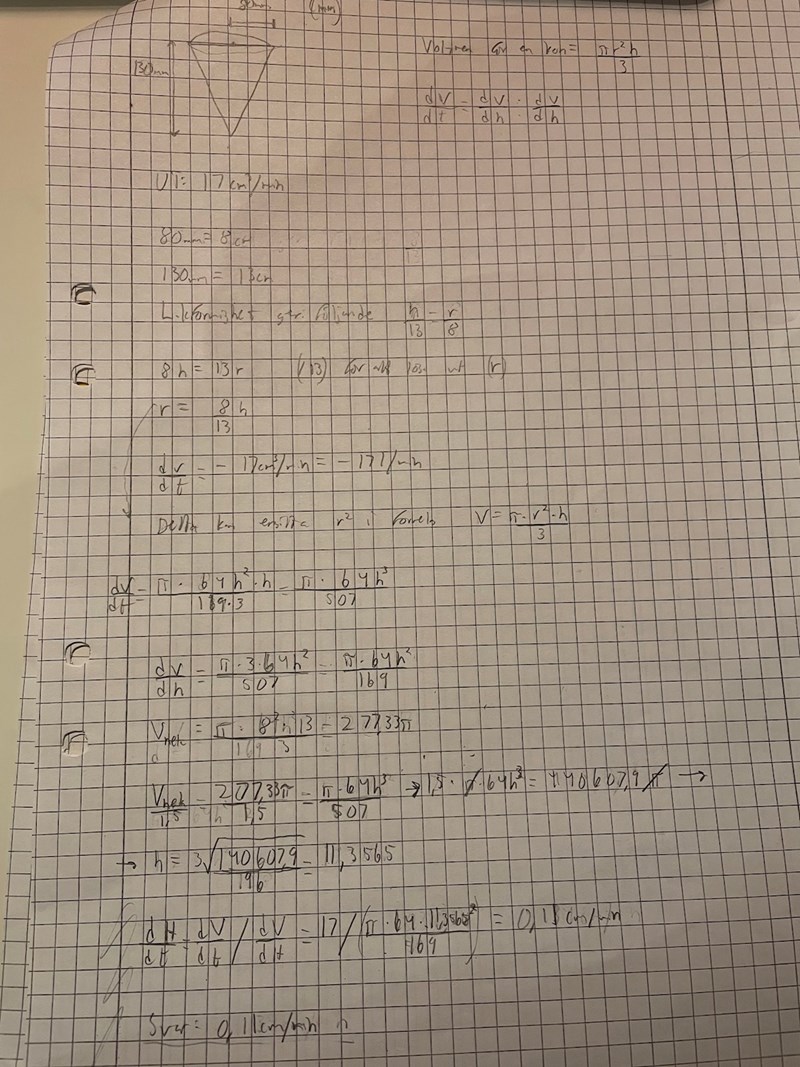 (mm)
130mm
Volymen för en kon = πr²h/3
dV/dt = dV/dh · dV/dh
UT = 17cm³/min
80mm = 8cm
130mm = 13cm
Likformighet ger följande h/13 = r/8
8h = 13r (/13) för att lösa ut (r)
r = 8h/13
dv/dt = - 17cm³/min = -17 /min
Detta kan ersätta r² i formeln V = π·r²·h/3
dV/dt = π · 64h²·h/169·3 = π · 64h³/507
dV/dh = π·3·64h²/507 = π·64h²/169
= 277,33π
= 277,33π/1,5 = π·64h³/507 → 1,5 · π·64h³ = 140607,9 π →
→ h = 3√140607,9/196 = 11,3565
dH/dt = dV/dt / dV/dH = 17/(π·64·11,3565²/169) = 0,11cm/min
Svar: 0,11cm/min